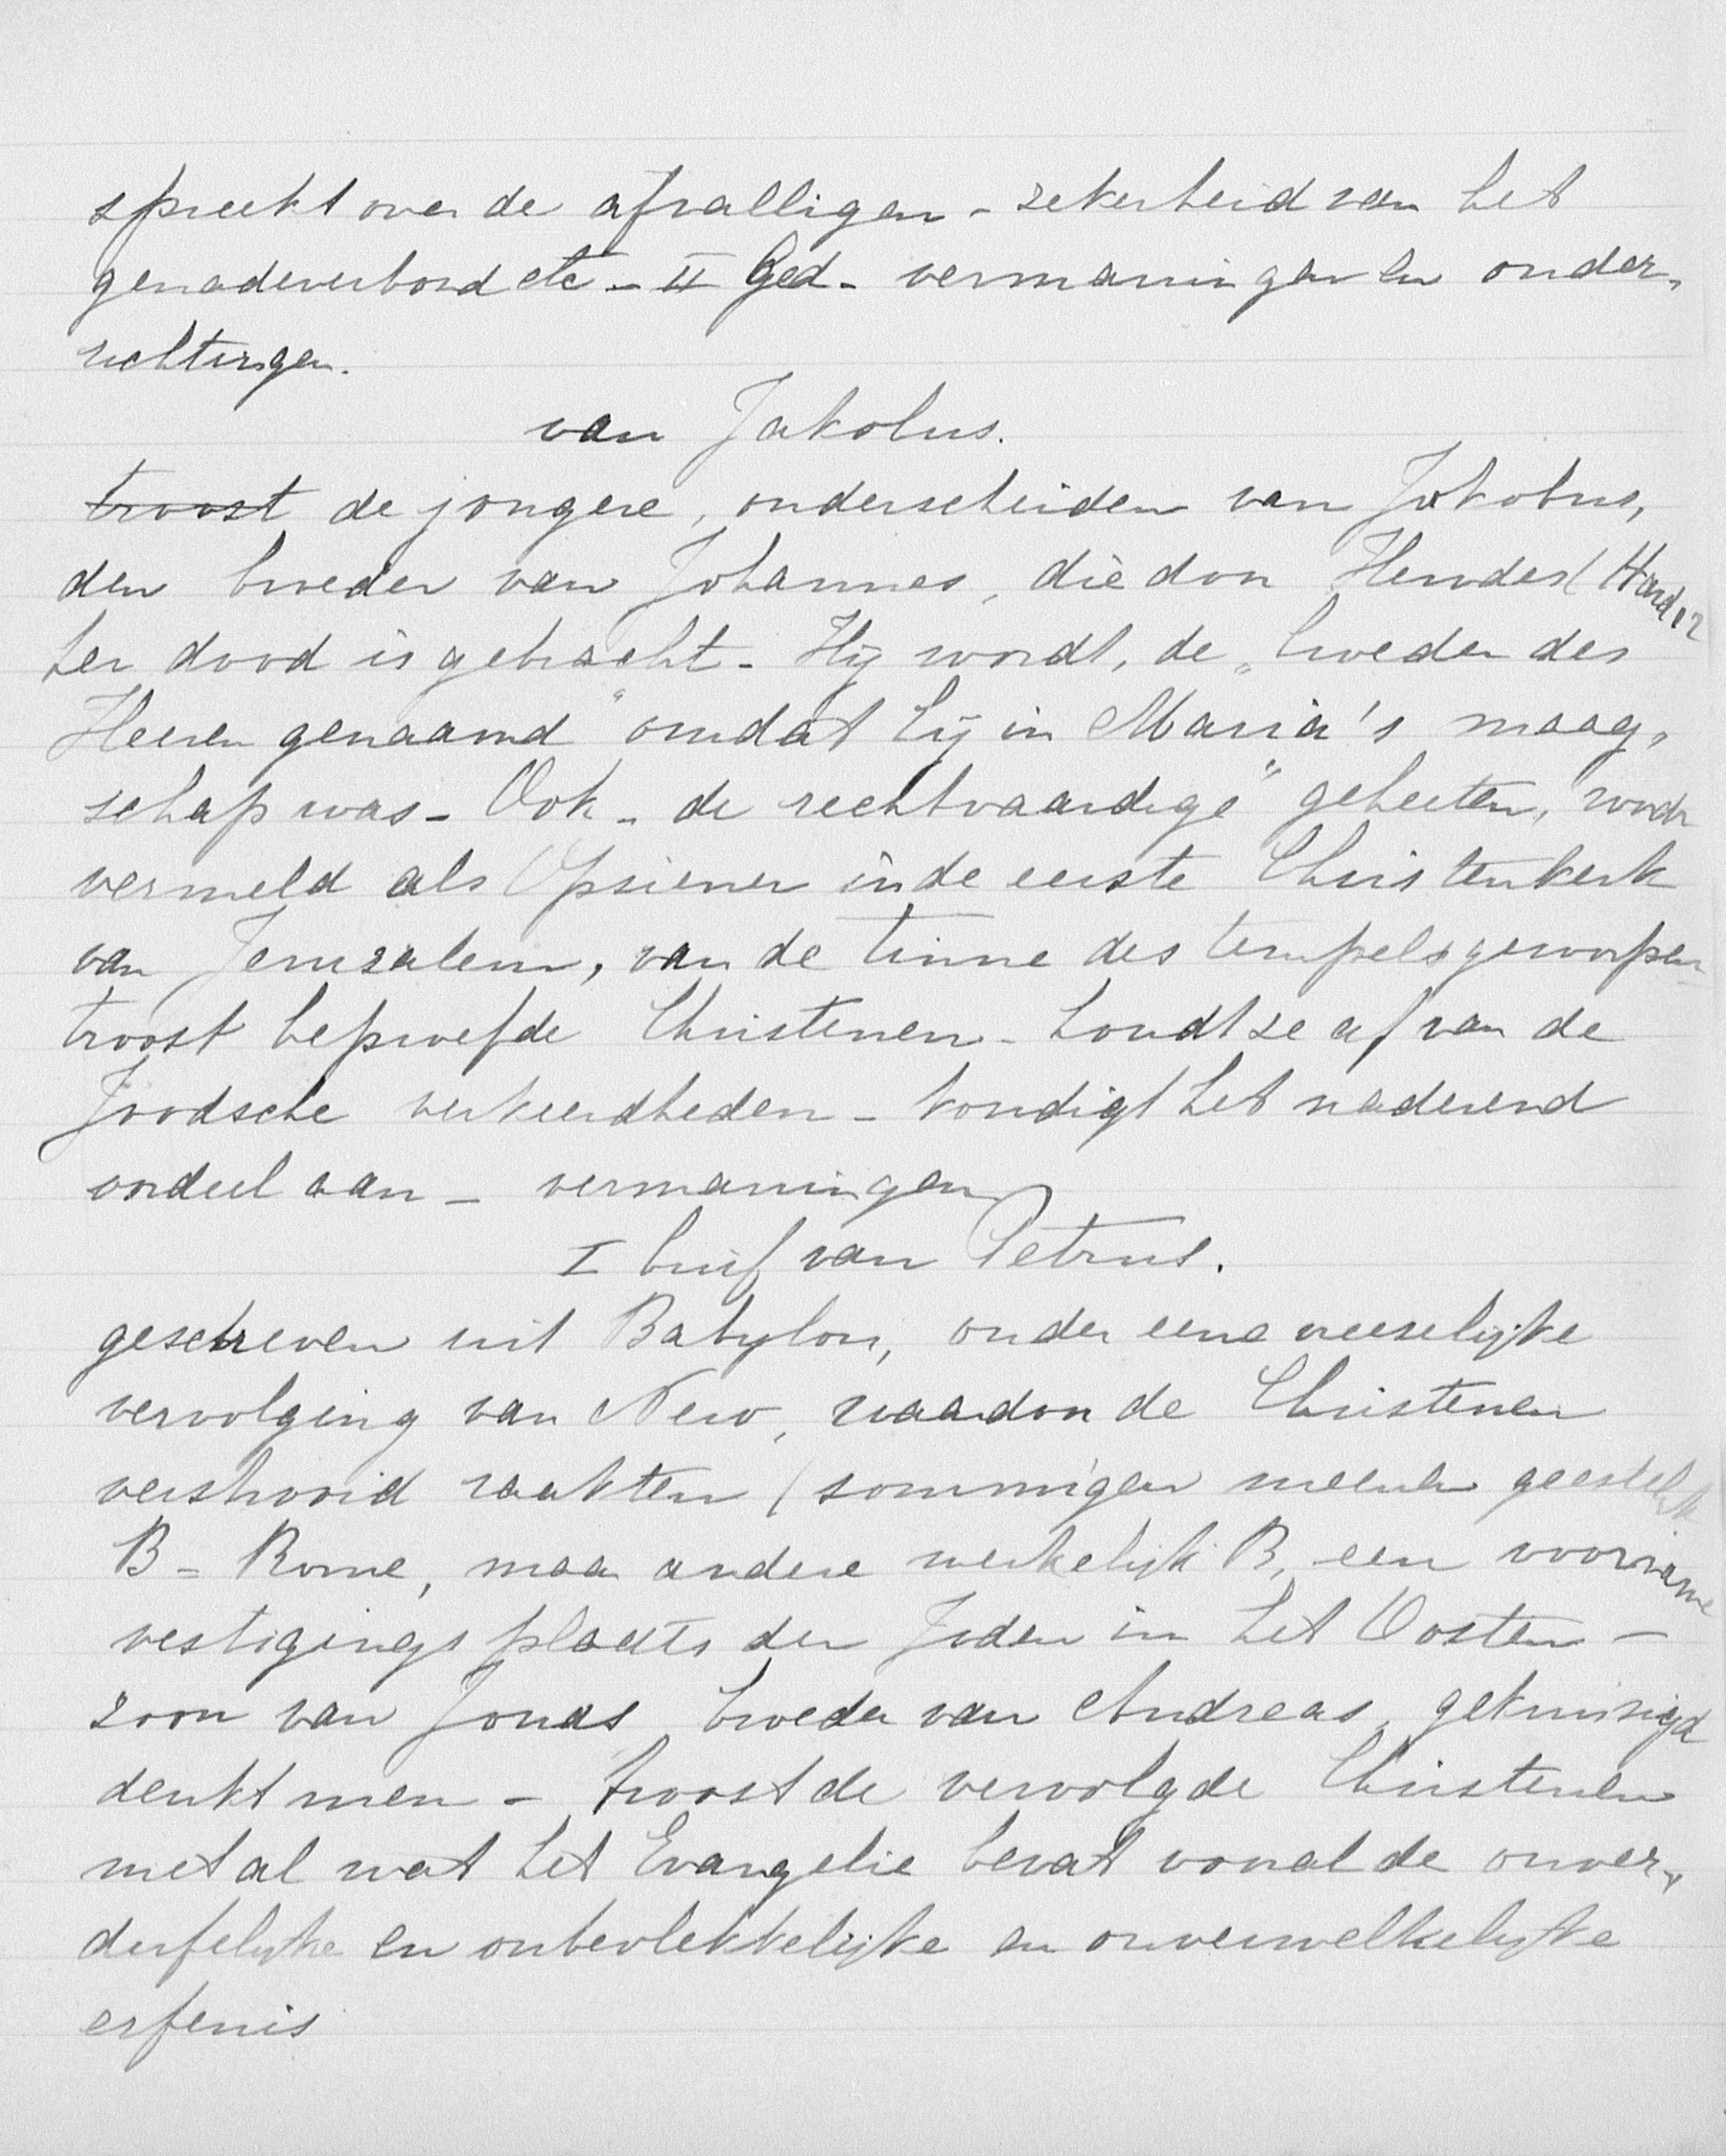 spreekt over de afvalligen - zekerheid van het
genadeverbond etc - II Ged - vermaningen en onder-
richtingen.
van Jakobus.
troost de jongere, onderscheiden van Jakobus,
den broeder van Johannes, die door Herodes (Hand 12
ter dood is gebracht - Hij wordt, de „broeder des
Heeren genaamd" omdat hij in Maria's maag-
schap was - Ook „de rechtvaardige" geheeten, wordt
vermeld als Opziener in de eerste Christenkerk
van Jeruzalem, van de tinne des tempels geworpen
troost beproefde Christenen - houdt ze af van de
Joodsche verkeerdheden - kondigt het naderend
oordeel aan - vermaningen
I brief van Petrus.
geschreven uit Babylon, onder eene vreeselijke
vervolging van Nero, waardoor de Christenen
verstrooid raakten (sommigen meenen geestelijk
B = Rome, maar andere werkelijk B, een voorname
vestigings plaats der Joden in het Oosten -
zoon van Jonas, broeder van Andreas, gekruisigd
denkt men - troost de vervolgde Christenen
met al wat het Evangelie bevat vooral de onver-
derfelijke en onbevlekkelijke en onverwelkelijke
erfenis